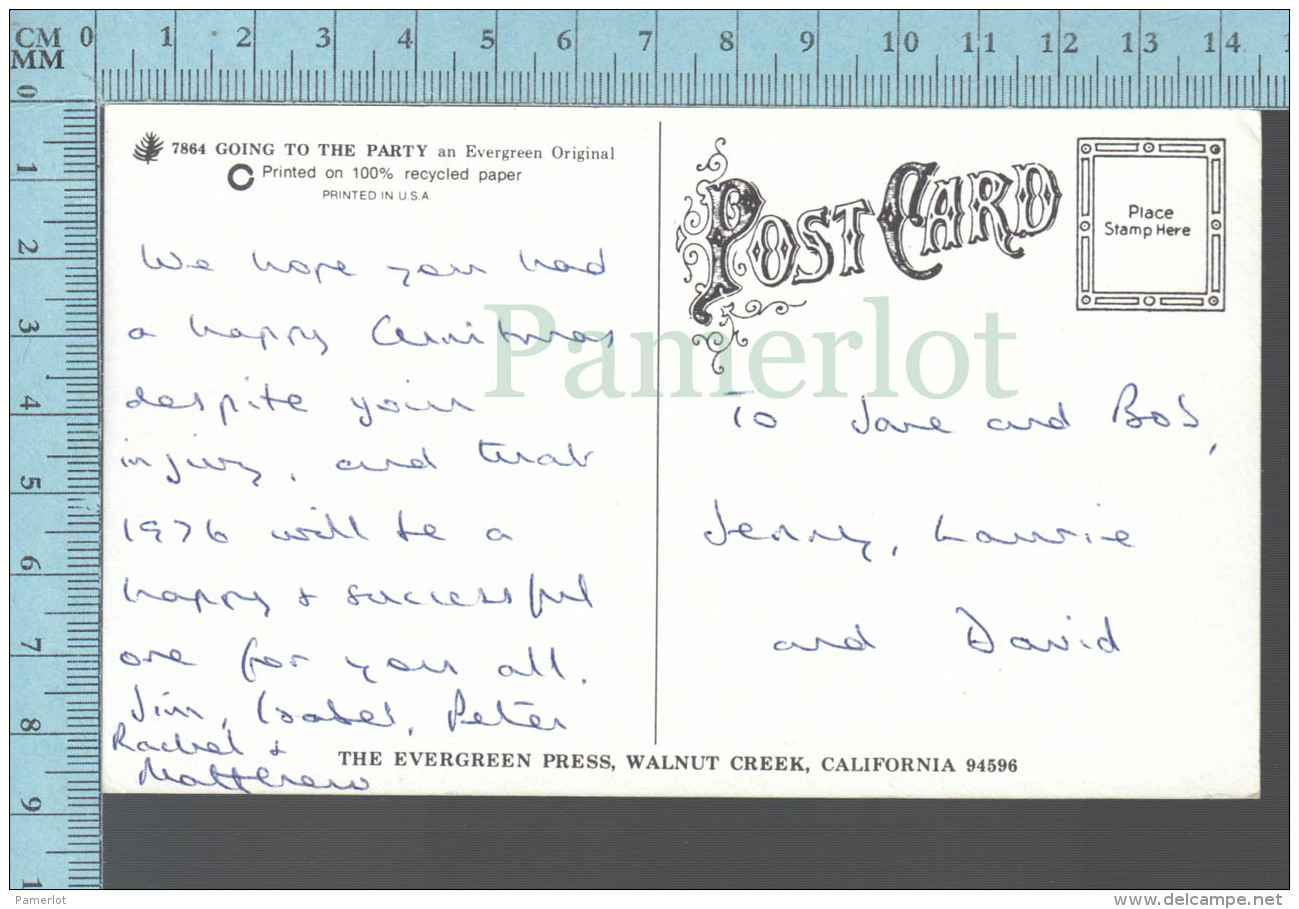 CM 0 1 2 3 4 5 6 7 8 9 10 11 12 13 14
MM
0 1 2 3 4 5 6 7 8 9 1
7864 GOING TO THE PARTY an Evergreen Original
Printed on 100% recycled paper
PRINTED IN U.S.A.
We hope you had
a happy Christmas
despite your
injury, and that
1976 will be a
happy & successful
one for you all.
Jim, Isabel, Peter
Rachel &
Matthew
POST CARD
Place
Stamp Here
To Jane and Bob,
Jenny, Laurie
and David
THE EVERGREEN PRESS, WALNUT CREEK, CALIFORNIA 94596
Pamerlot
Pamerlot
www.delcampe.net